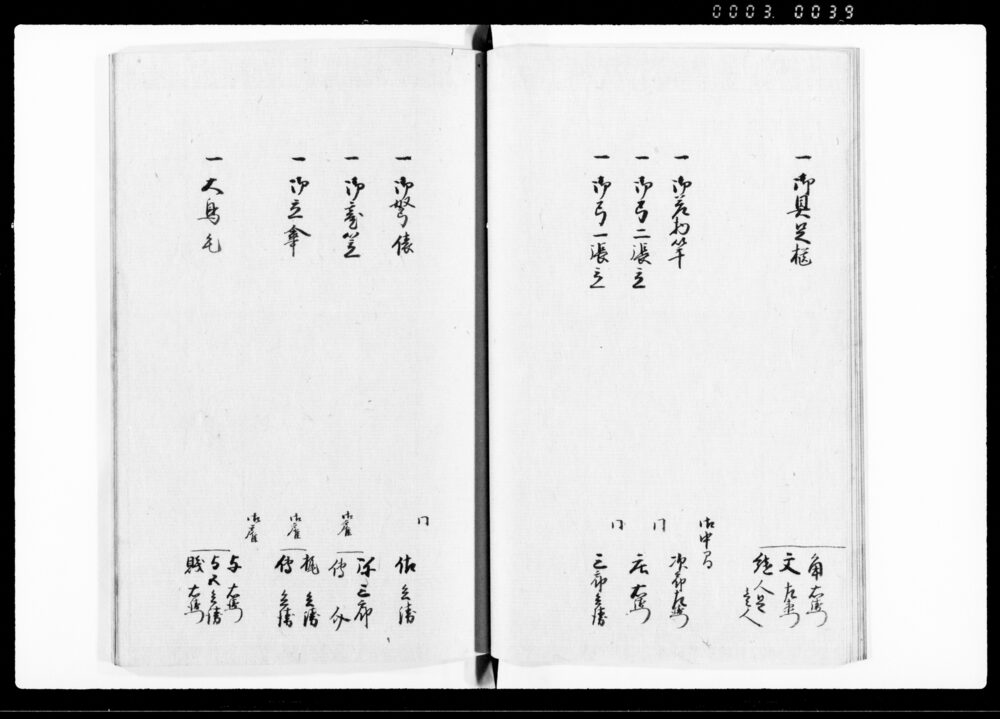 0003 0039
一 御具足櫃
角右衛門
文左衛門
人足
一 御
御中間
次郎左衛門
一 御弓二張立
同
庄右衛門
一 御弓一張立
同
三郎兵衛
一 御弩俵
同
佐兵衛
一 御台笠
御雇
弥三郎
傳
一 御立傘
御雇
梶兵衛
傳兵衛
一 大鳥毛
御雇
与右衛門
与又兵衛
右衛門